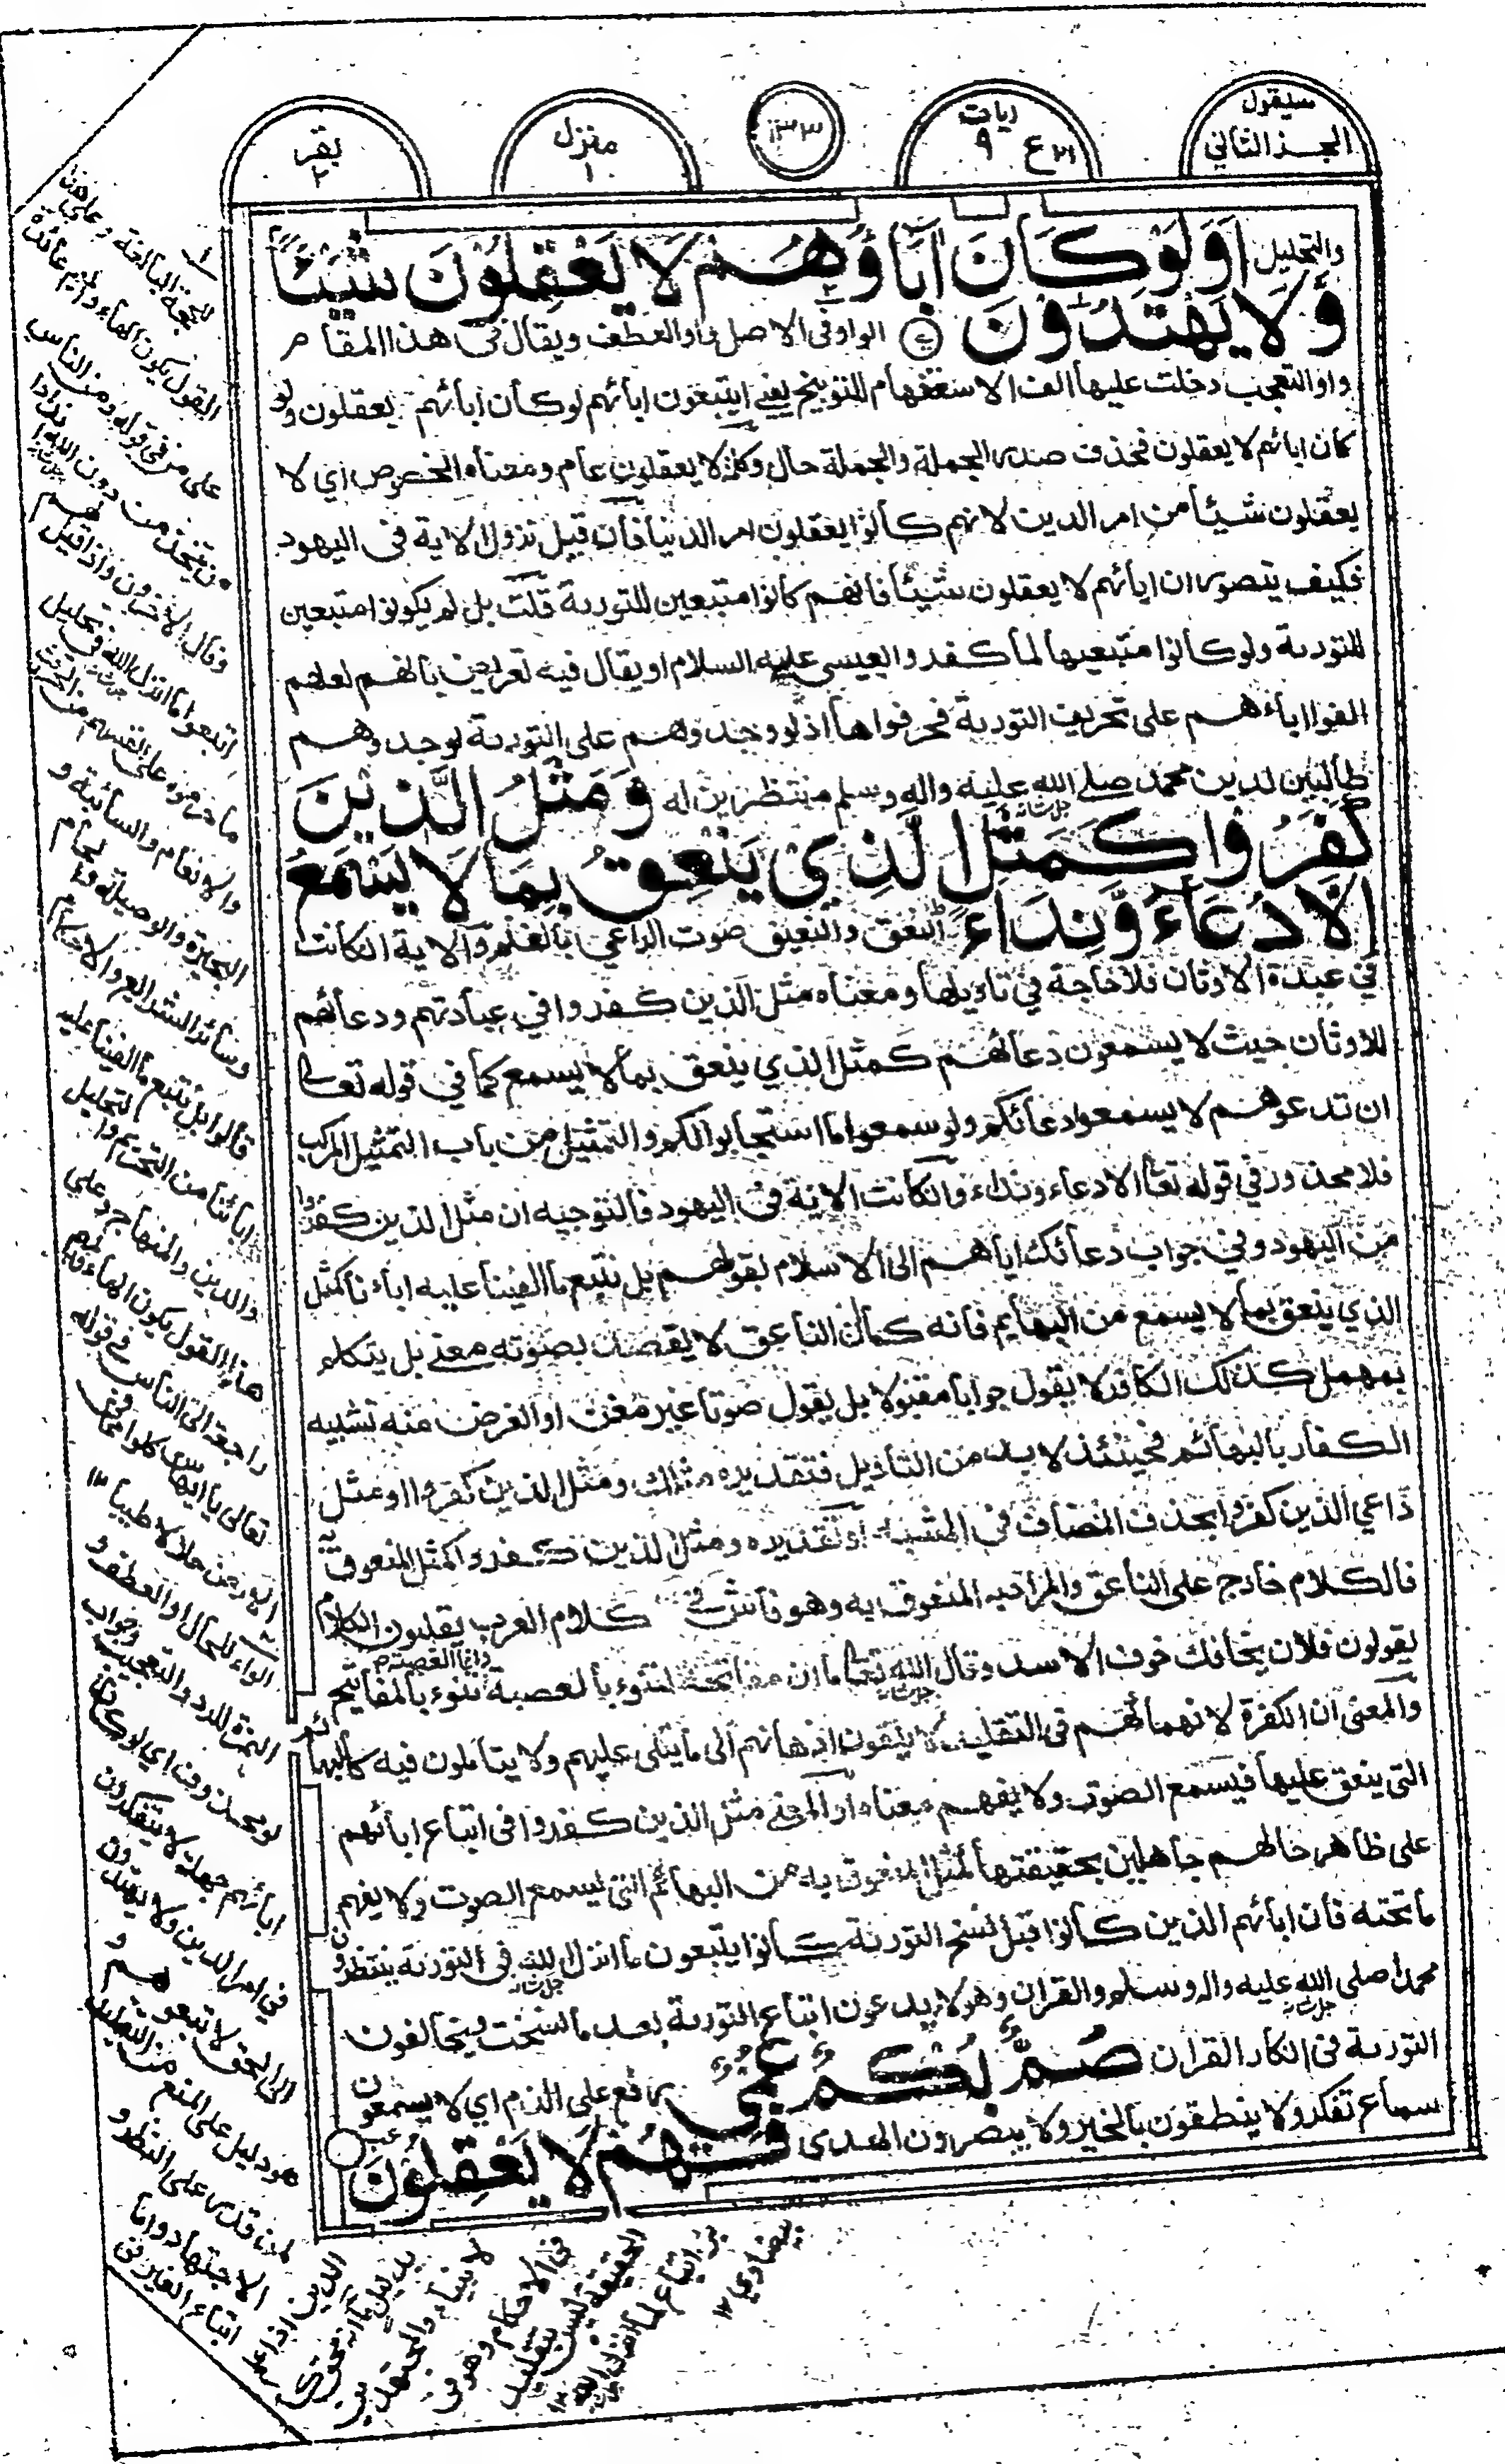 سيقول
الجزء الثاني
ع ٢١
٩
منزل
١
بقر
٢
والتحليل اَوَلَوْ كَانَ اٰبَآؤُهُمْ لَا يَعْقِلُوْنَ شَيْئًا
وَّلَا يَهْتَدُوْنَ الواو في الاصل واو العطف ويقال في هذا المقام
واو التعجب دخلت عليها الف الاستفهام للتوبيخ يعني ايتبعون ابائهم لو كان ابائهم يعقلون ولو
كان ابائهم لا يعقلون فحذف صدر الجملة والجملة حال وكلمة لا يعقلون عام ومعناه الخصوص اي لا
يعقلون شيئا من امر الدين لانهم كانوا يعقلون امر الدنيا فان قيل نزول الاية في اليهود
فكيف يتصور ان ابائهم لا يعقلون شيئا فانهم كانوا متبعين للتورية قلت بل لم يكونوا متبعين
للتورية ولو كانوا متبعيها لما كفروا لعيسى عليه السلام او يقال فيه تعريض بانهم لعلهم
الفوا اباءهم على تحريف التورية فحرفوها اذ لو وجدوهم على التورية لوجدوهم
طالبين لدين محمد صلى الله عليه واله وسلم منتظرين له وَمَثَلُ الَّذِيْنَ
كَفَرُوْا كَمَثَلِ الَّذِيْ يَنْعِقُ بِمَا لَا يَسْمَعُ
اِلَّا دُعَآءً وَّنِدَآءً النعق والنعيق صوت الراعي بالغنم والاية ان كانت
في عبدة الاوثان فلا حاجة في تاويلها ومعناه مثل الذين كفروا في عبادتهم ودعائهم
للاوثان حيث لا يسمعون دعائهم كمثل الذي ينعق بما لا يسمع كما في قوله تعالى
ان تدعوهم لا يسمعوا دعائكم ولو سمعوا ما استجابوا لكم والتمثيل من باب التمثيل المركب
فلا محذور في قوله تعا الا دعاء ونداء وان كانت الاية في اليهود فالتوجيه ان مثل الذين كفروا
من اليهود وفي جواب دعائك اياهم الى الاسلام بقولهم بل نتبع ما الفينا عليه اباءنا كمثل
الذي ينعق بما لا يسمع من البهايم فانه كما ان الناعق لا يقصد بصوته معنى بل يتكلم
بمهمل كذلك الكافر لا يقول جوابا مقبولا بل يقول صوتا غير معنى او الغرض منه تشبيه
الكفار بالبهائم فحينئذ لا بد من التاويل فتقديره مثلك ومثل الذين كفروا او مثل
داعي الذين كفروا بحذف المضاف في المشبه او تقديره ومثل الذين كفروا كمثل المنعوق به
فالكلام خارج على الناعق والمراد به المنعوق به وهو فاش في كلام العرب يقلبون الكلام
يقولون فلان يخافك خوف الاسد وقال الله تعا ما ان مفاتحه لتنوء بالعصبة تنوء بالمفاتيح
والمعنى ان الكفرة لانهماكهم في التقليد لا يلقون اذهانهم الى ما يتلى عليهم ولا يتاملون فيه كالبهائم
التي ينعق عليها فيسمع الصوت ولا يفهم معناه او المعنى مثل الذين كفروا في اتباع ابائهم
على ظاهر حالهم جاهلين بحقيقتها كمثل المنعوق به من البهائم التي يسمع الصوت ولا يفهم
ما تحته فان ابائهم الذين كانوا قبل نسخ التورية كانوا يتبعون ما انزل الله في التورية ينتظرون
محمدا صلى الله عليه واله وسلم والقران وهولاء يدعون اتباع التورية بعد ما نسخت ويخالفون
التورية في انكار القران صُمٌّۢ بُكْمٌ عُمْيٌ رفع على الذم اي لا يسمعون
سماع تفكر ولا ينطقون بالخير ولا يبصرون الهدى فَهُمْ لَا يَعْقِلُوْنَ
الحجة البالغة وعلى هذا
القول يكون الهاء والميم عائدة
على من في قوله ومن الناس
من يتخذ من دون الله اندادا
وقال الاخرون واذا قيل لهم
اتبعوا ما انزل الله في تحليل
ما حرموه على انفسهم من الحرث
والانعام والسائبة و
البحيرة والوصيلة والحام
وسائر الشرائع والاحكام
قالوا بل نتبع ما الفينا عليه
ابائنا من التحريم والتحليل
والدين والمنهاج وعلى
هذا القول يكون الهاء والميم
راجعة الى الناس في قوله
تعالى يا ايها الناس كلوا مما في
الارض حلالا طيبا ١٢
الواو للحال او العطف و
الهمزة للرد والتعجيب وجواب
لو محذوف اي لو كان
ابائهم جهلة لا يتفكرون
في امر الدين ولا يهتدون
الى الحق لاتبعوهم و
هو دليل على المنع من التقليد
لمن قدر على النظر و
الاجتهاد واما
اتباع الغير في
الدين اذا علم
بدليل ما انه محق
لا نبياء والمجتهدين
في الاحكام فهو في
الحقيقة ليس بتقليد
بل اتباع لما انزل الله
بيضاوي ١٢